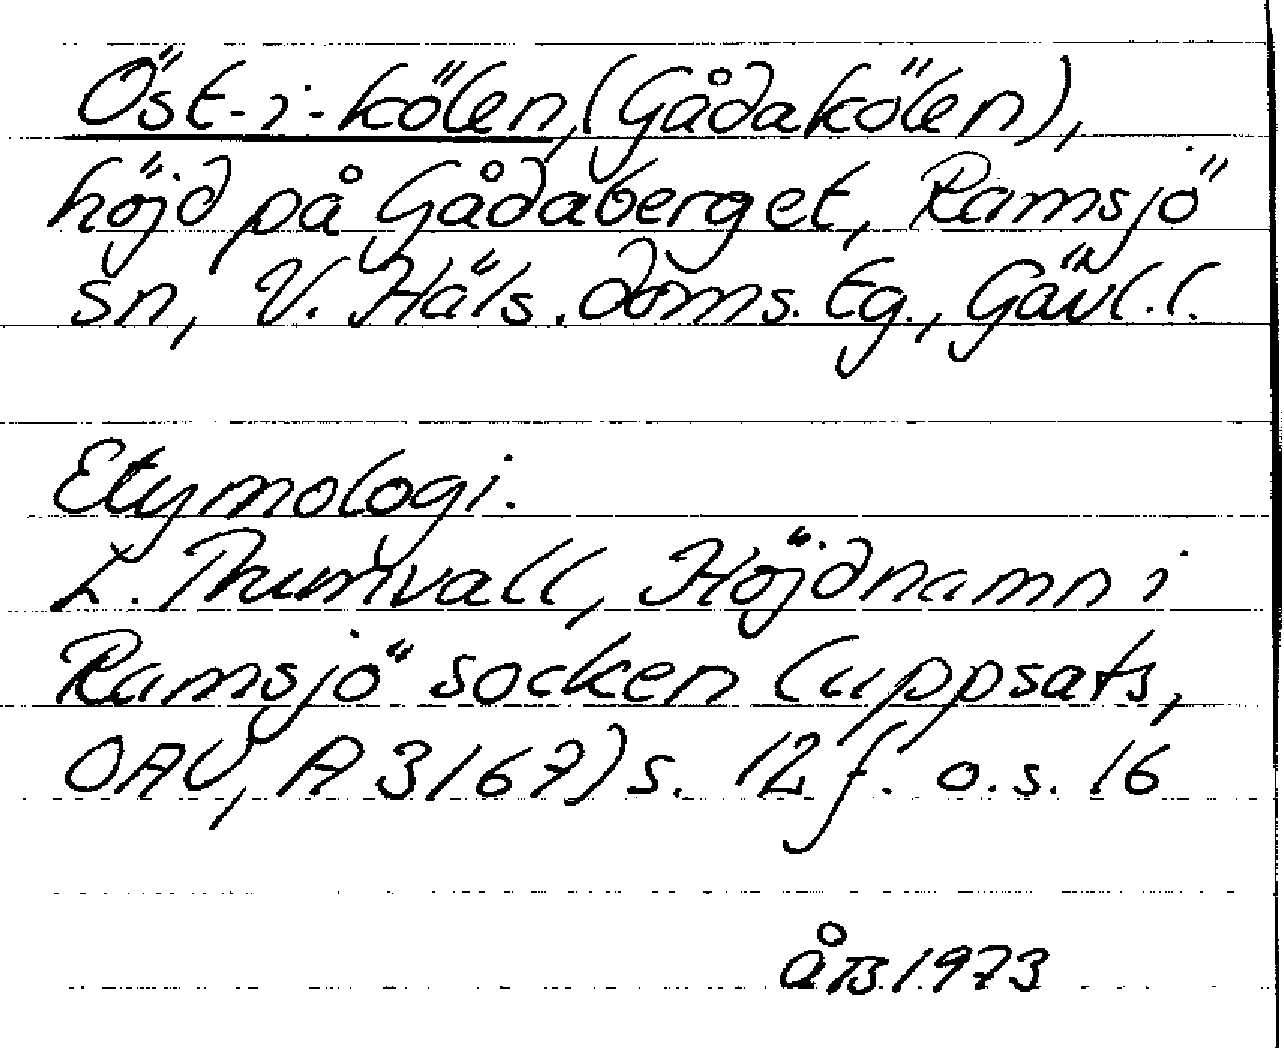 Öst-i-kölen, (Gådakölen),
höjd på Gådaberget, Ramsjö
sn, V. Häls. doms. tg., Gävl. l.
Etymologi.
L. Thunvall, Höjdnamn i
Ramsjö socken (uppsats,
OAU, A 3167) s. 12 f. o. s. 16
ÅB 1973